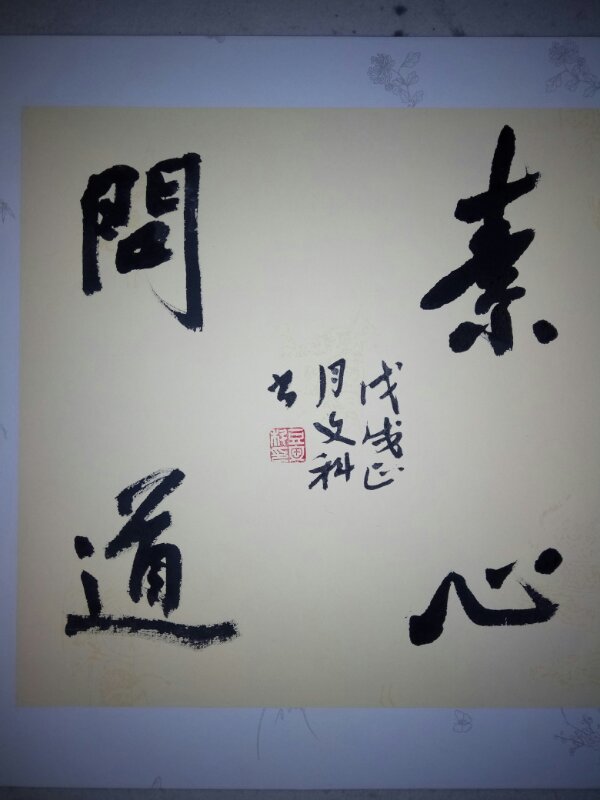 素心
問道
戊戌正
月文科
书